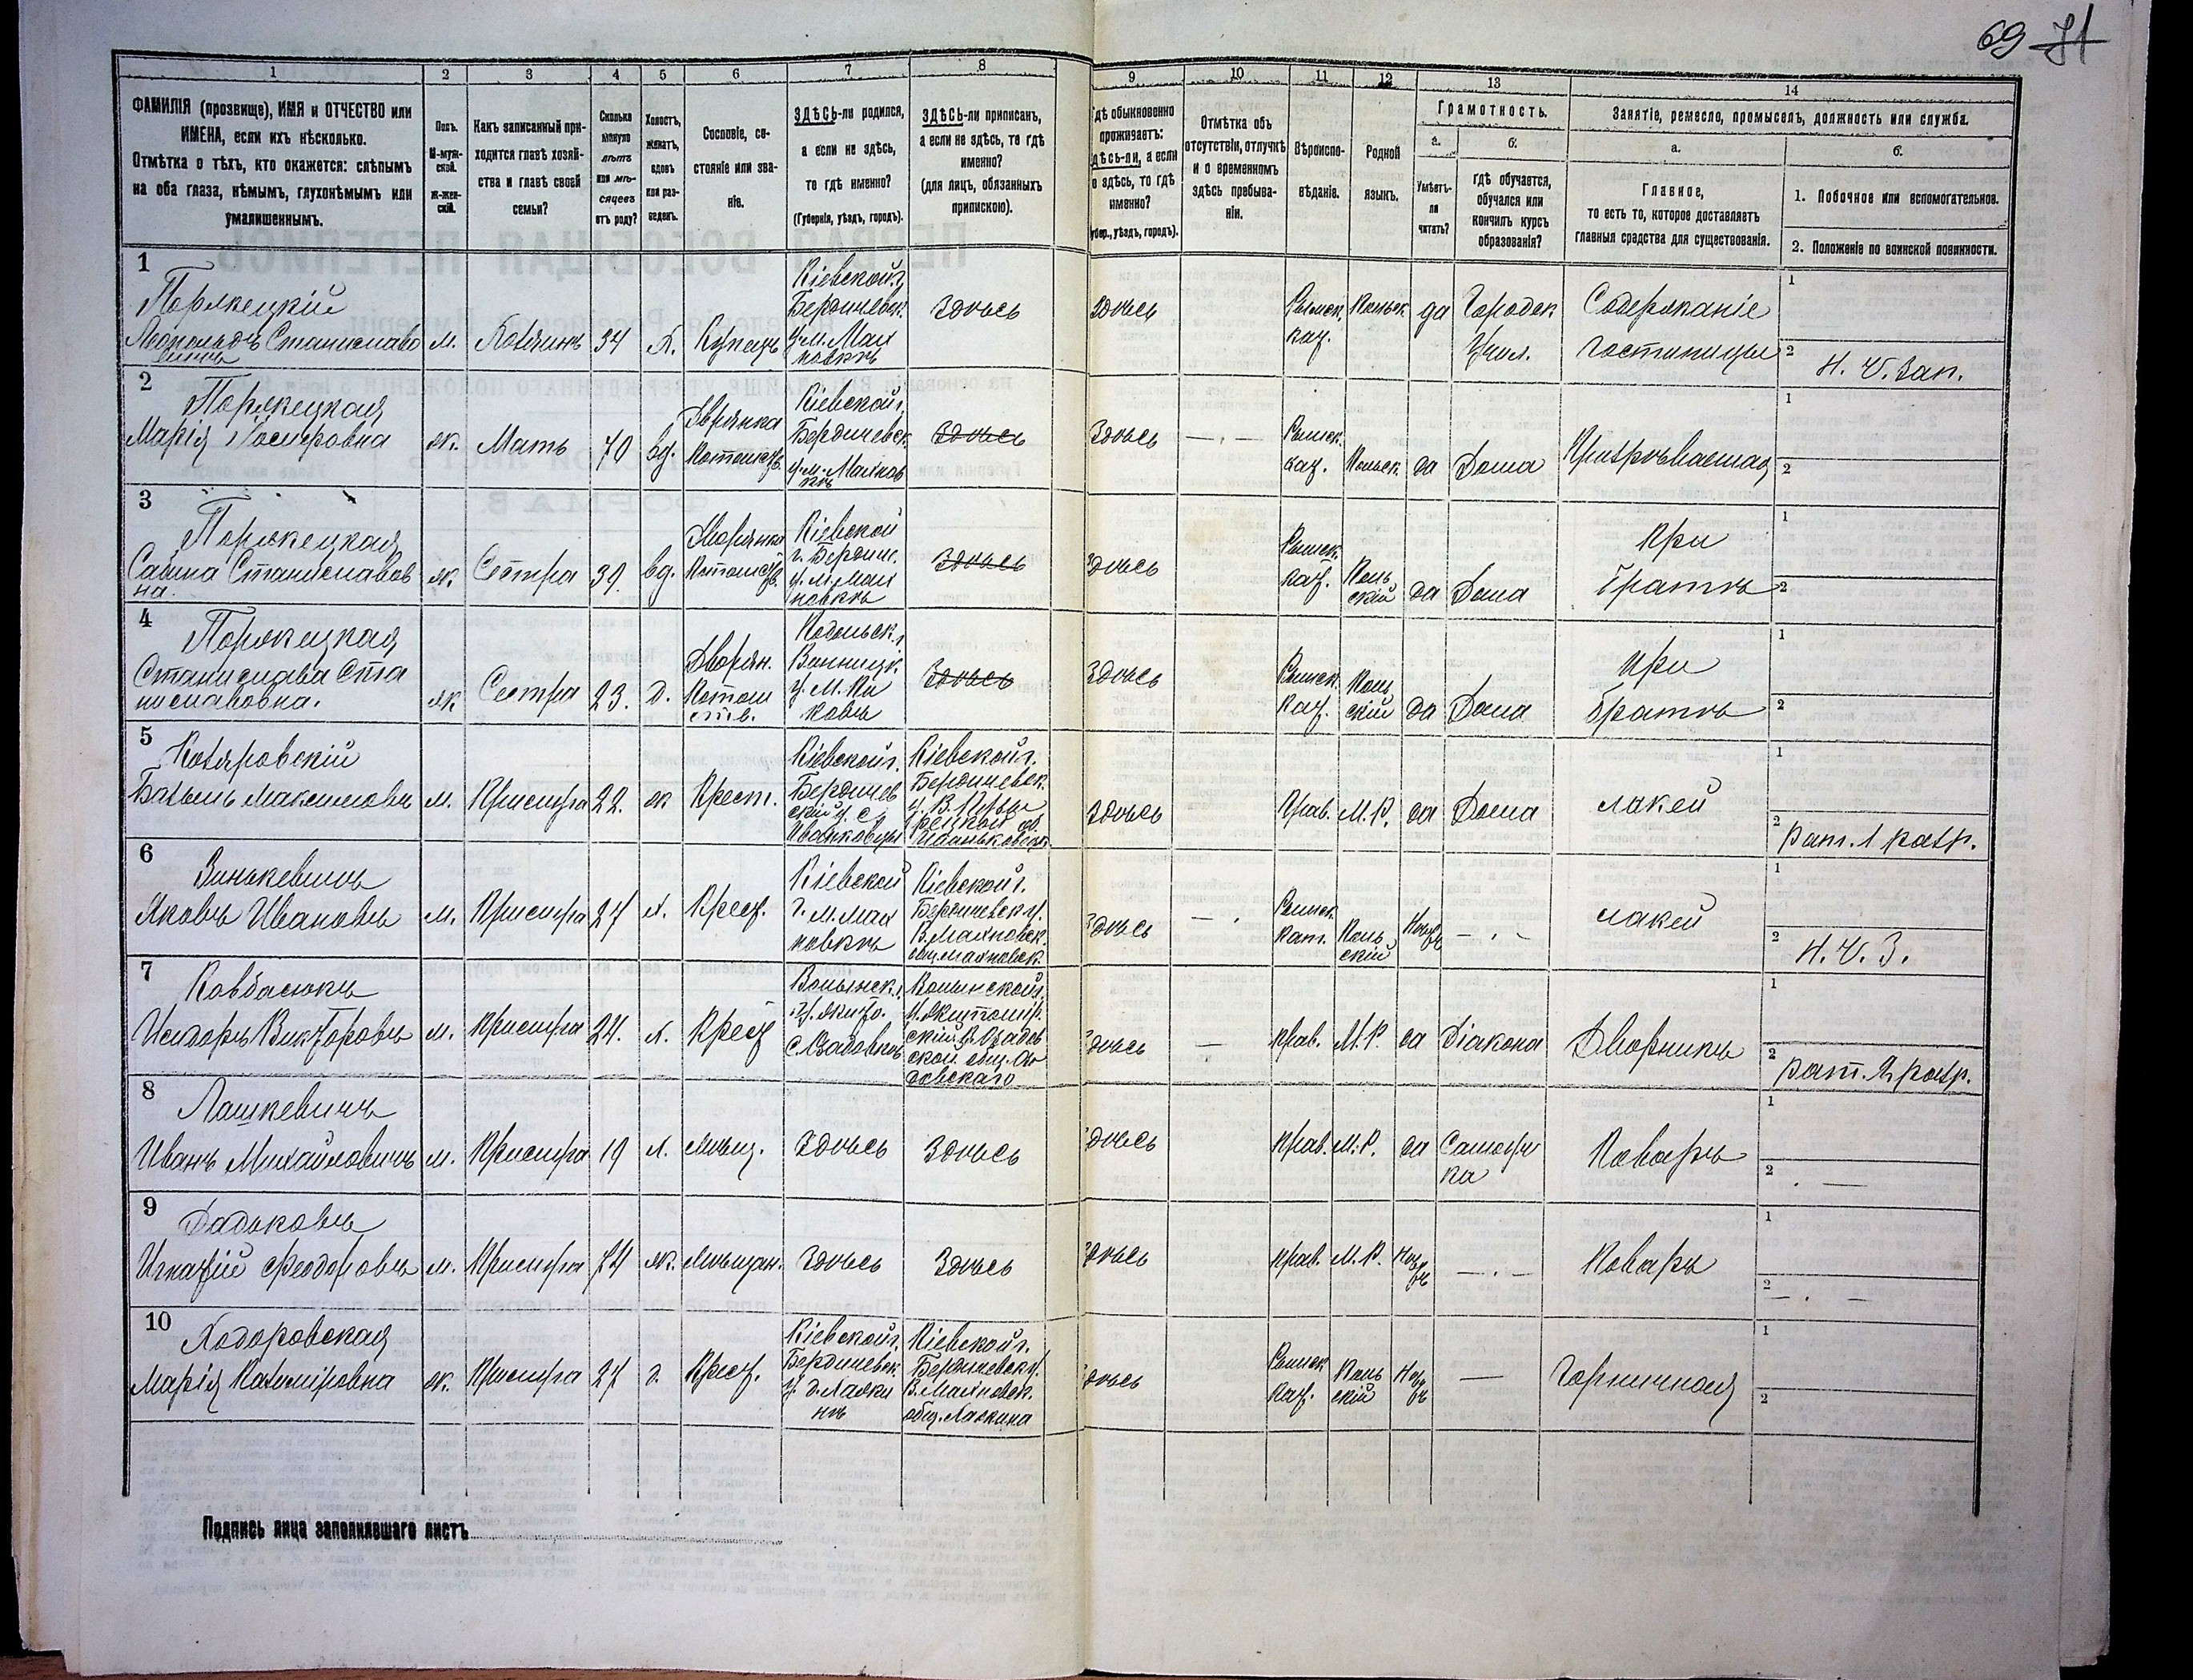 69 71
1 2 3 4 5 6 7 8 9 10 11 12 13 14
ФАМИЛІЯ (прозвище), ИМЯ и ОТЧЕСТВО или
ИМЕНА, если ихъ нѣсколько.
Отмѣтка о тѣхъ, кто окажется: слѣпымъ
на оба глаза, нѣмымъ, глухонѣмымъ или
умалишеннымъ.
Полъ.
М-муж-
ской.
ж-жен-
скій.
Какъ записанный при-
ходится главѣ хозяй-
ства и главѣ своей
семьи?
Сколько
минуло
лѣтъ
или мѣ-
сяцевъ
отъ роду?
Холостъ,
женатъ,
вдовъ
или раз-
веденъ.
Сословіе, со-
стояніе или зва-
ніе.
ЗДѢСЬ-ли родился,
а если не здѣсь,
то гдѣ именно?
(Губернія, уѣздъ, городъ).
ЗДѢСЬ-ли приписанъ,
а если не здѣсь, то гдѣ
именно?
(для лицъ, обязанныхъ
припискою).
Гдѣ обыкновенно
проживаетъ:
здѣсь-ли, а если
не здѣсь, то гдѣ
именно?
(Губер., уѣздъ, городъ).
Отмѣтка объ
отсутствіи, отлучкѣ
и о временномъ
здѣсь пребыва-
ніи.
Вѣроиспо-
вѣданіе.
Родной
языкъ.
Грамотность.
а.
Умѣетъ-
ли
читать?
б.
гдѣ обучается,
обучался или
кончилъ курсъ
образованія?
Занятіе, ремесло, промыселъ, должность или служба.
а.
Главное,
то есть то, которое доставляетъ
главныя средства для существованія.
б.
1. Побочное или вспомогательное.
2. Положеніе по воинской повинности.
1
Поржецкій
Леопольдъ Станиславо
вичъ
м. Хозяинъ 34 х. Купецъ
Кіевской г.
Бердичевск.
у. м. Мах
новкѣ
Здѣсь
Здѣсь
Римск.
каѳ.
Польск. да
Городск
Учил.
Содержаніе
гостиницы
1
2 Н. Ч. Зап.
2
Поржецкая
Марія Іосифовна
ж. Мать 70 вд.
Дврянка
Потомств.
Кіевской г.
Бердичевск
у. м. Махнов
кѣ
Здѣсь
Здѣсь
Римск.
каѳ.
Польск. да Дома
1
2
3
Поржецкая
Сабина Станиславов
на.
ж. Сестра 39. вд.
Дворянка
Потомств.
Кіевской
г. Бердич.
у. м. Мах
новкѣ
Здѣсь
Здѣсь
Римск.
каѳ.
Поль
скій
да Дома
При
братѣ
1
2
4
Поржецкая
Станислава Ста
ниславовна.
ж Сестра 23. д.
Дворян.
Потом
ств.
Подольск. г.
Винницк.
у. м. Пи
ковъ
Здѣсь
Здѣсь
Римск.
каѳ.
Поль
скій
да Дома
при
братѣ
1
2
5
Козяровскій
Василь Максимовъ
м. Прислуга 22. ж Крест.
Кіевской г.
Бердичев
скій у. с.
Иванковцы
Кіевской г.
Бердичевск.
Здѣсь
Прав. М. Р. да Дома
лакей
1
2 рат. 1 разр.
6
Зинькевичъ
Яковъ Ивановъ
м. Прислуга 27 х. Крест.
Кіевской
г. м. Мах
новкѣ
Кіевской г.
Бердичевск у.
В. Махновск.
общ. Махновск.
Здѣсь
— . 
Римск.
Кат.
Поль
скій
— . —
лакей
1
2 Н. Ч. З.
7
Ковбасюкъ
Исидоръ Викторовъ
м. Прислуга 24. х. Крест
Волынск. г.
у. Жито.
Волынской г.
у. Житомір.
Здѣсь
—
прав. М. Р. да Діакона
Дворникъ
1
2 рат. 2 разр.
8
Лашкевичъ
Иванъ Михайловичъ
м. Прислуга 19 х. мѣщ. Здѣсь Здѣсь
Здѣсь
прав. М. Р. да
Самоуч
ка
Поваръ
1
2 . —
9
Дадьковъ
Игнатій Феодоровъ
м. Прислуга 74 ж. мѣщан. Здѣсь Здѣсь
Здѣсь
прав. М. Р.
— . —
Поваръ
1
2 — . —
10
Ходоровская
Марія Казиміровна
ж. Прислуга 27 д. Крест.
Кіевской г.
Бердичевск.
Кіевской г.
Бердичевск у.
В. Махновск.
Здѣсь
Римск
каѳ.
Поль
скій
—
Горничная
1
2
Подпись лица заполнявшаго листъ